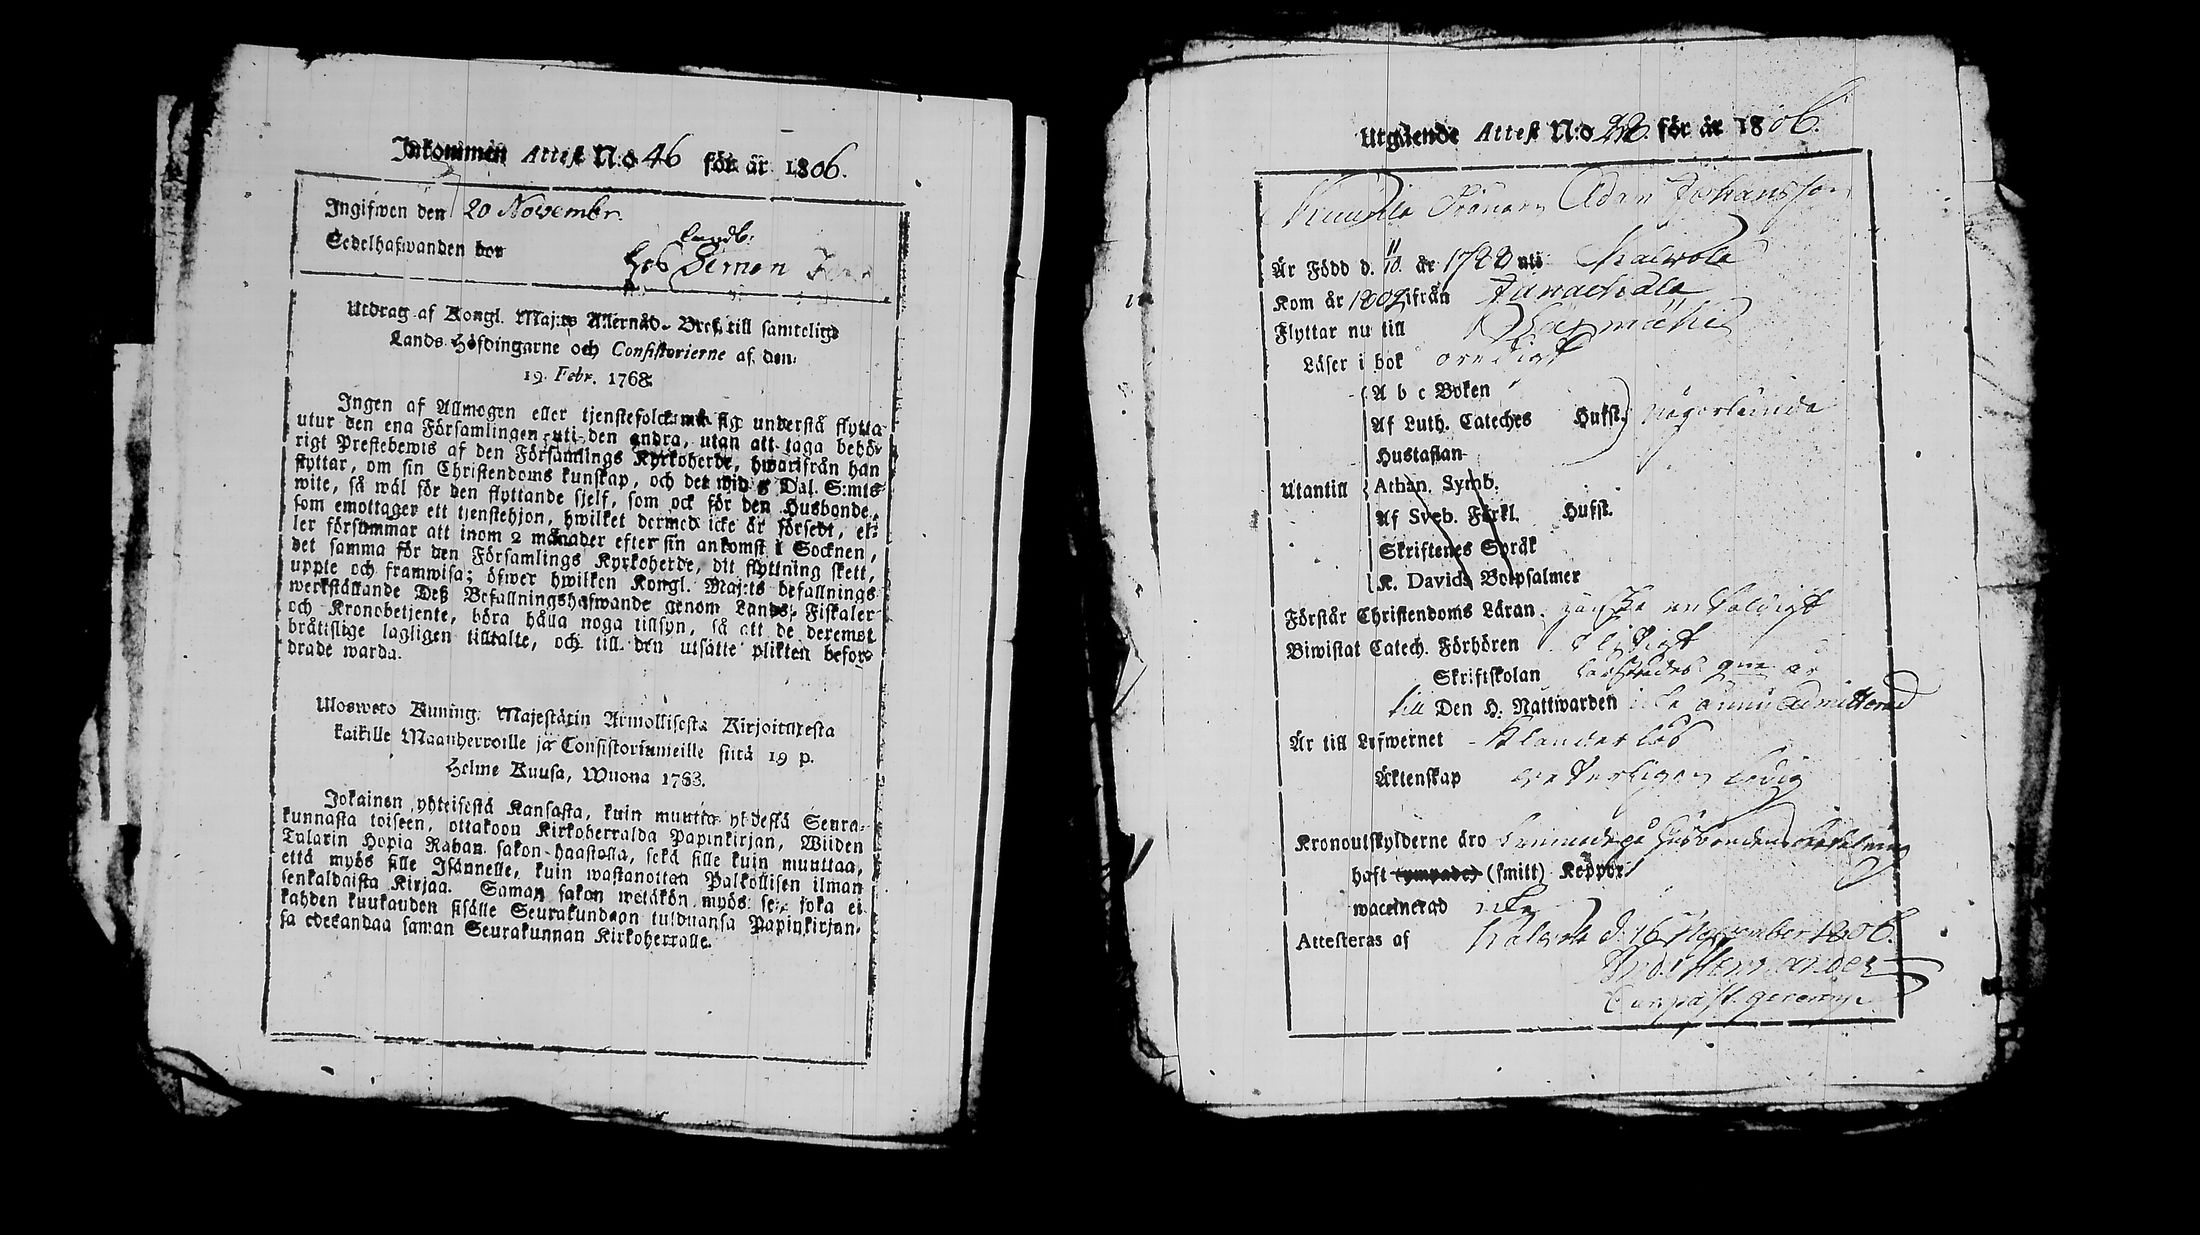 Inkommen Attest N:o 46 för år 1806.
Ingifwen den 20 Novembr.
Sedelhafwanden
Landb:
hos Simon
Utdrag af Kongl. Maj:ts Allernåd. Bref till samtelige
Lands Höfdingarne och Consistorierne af den
19. Febr. 1768.
Ingen af Allmogen eller tjenstefolck må sig understå flytta
utur den ena Församlingen uti den andra, utan att taga behö-
rigt Prestebewis af den Församlings Kyrkoherde, hwarifrån han
flyttar, om sin Christendoms kunskap, och det wid 5 Dal. S:mts
wite, så wäl för den flyttande sjelf, som ock för den Husbonde,
som emottager ett tjenstehjon, hwilket dermed icke är försedt, el-
ler försummar att inom 2 månader efter sin ankomst i Socknen,
det samma för den Församlings Kyrkoherde, dit flyttning skett,
uppte och framwisa; öfwer hwilken Kongl. Maj:ts befallnings
werkställande Deß Befallningshafwande genom Lands Fiskaler
och Kronobetjente, böra hålla noga tillsyn, så att de deremot
bråtislige lagligen tilltalte, och till den utsatte plikten befor-
drade warda.
Ulosweto Kuning. Majestätin Armollisesta Kirjoituxesta
kaikille Maanherroille ja Consistoriumeille siitä 19 p.
Helme Kuusa, Wuona 1783.
Jokainen yhteisestä Kansasta, kuin muutta yhdestä Seura-
kunnasta toiseen, ottakoon Kirkoherralda Papinkirjan, Wiiden
Talarin Hopia Rahan sakon haastolla, sekä sille kuin muuttaa,
että myös sille Isännelle, kuin wastanottaa Palkollisen ilman
senkaldaista Kirjaa. Saman sakon wetäkön myös se, joka ei
kahden kuukauden sisälle Seurakundaon tulduansa Papinkirjan-
sa edeskandaa saman Seurakunnan Kirkoherralle.
Utgående Attest N:o 22 för år 1806.
Adam Johansson
Är Född d. 11/10. år 1788 uti Kalwola
Kom år 1802 ifrån Janackala
Flyttar nu till
Läser i bok oredigt
A b c Boken
Af Luth. Cateches Hufst. någorlunda
Hustaflan
Utantill Athan. Symb.
Af Sveb. Förkl. Hufst.
Skriftenes Språk
K. Davids Botpsalmer
Förstår Christendoms Läran ganska enfaldigt
Biwistat Catech. Förhören flitigt
Skriftskolan
till Den H. Nattwarden icke ännu admitterad
Är till Lefwernet Klanderlös
Äktenskap ledig
Kronoutskylderne äro
haft (ympade) (smitt) Koppor
waccinerad
Attesteras af Kalwola d. 16 November 1806.